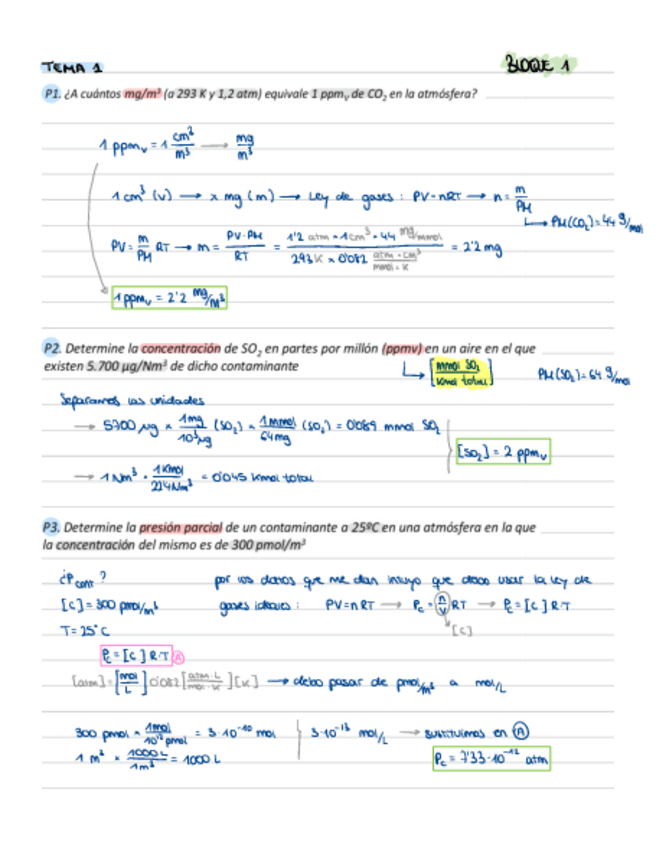 TEMA 1
BLOQUE 1
P1. ¿A cuántos mg/m³ (a 293 K y 1,2 atm) equivale 1 ppmᵥ de CO₂ en la atmósfera?
1 ppmᵥ = 1 cm³/m³ → mg/m³
1 cm³ (v) → x mg (m) → Ley de gases : PV=nRT → n = m/PM
↳ PM(CO₂)=44 g/mol
PV = m/PM RT → m = PV·PM/RT = 1'2 atm · 1 cm³ · 44 mg/mmol / 293 K × 0'082 atm·cm³/mmol·K = 2'2 mg
1 ppmᵥ = 2'2 mg/m³
P2. Determine la concentración de SO₂ en partes por millón (ppmv) en un aire en el que
existen 5.700 µg/Nm³ de dicho contaminante
↳ [mmol SO₂/kmol total]
PM(SO₂)=64 g/mol
Separamos las unidades
→ 5700 µg × 1mg/10³µg (SO₂) × 1mmol/64mg (SO₂) = 0'089 mmol SO₂
[SO₂] = 2 ppmᵥ
→ 1 Nm³ · 1Kmol/22'4Nm³ = 0'045 Kmol total
P3. Determine la presión parcial de un contaminante a 25ºC en una atmósfera en la que
la concentración del mismo es de 300 pmol/m³
¿P cont ?
por los datos que me dan intuyo que debo usar la ley de
[C] = 300 pmol/m³
gases ideales : PV=nRT → Pc = n/V RT → Pc = [C] R·T
T= 25°C
[C]
Pc = [C] R·T Ⓐ
[atm] = [mol/L] 0'082 [atm·L/mol·K] [K] → debo pasar de pmol/m³ a mol/L
300 pmol × 1mol/10¹² pmol = 3·10⁻¹⁰ mol
3·10⁻¹³ mol/L → sustituimos en Ⓐ
1 m³ × 1000 L/1m³ = 1000 L
Pc = 7'33·10⁻¹² atm